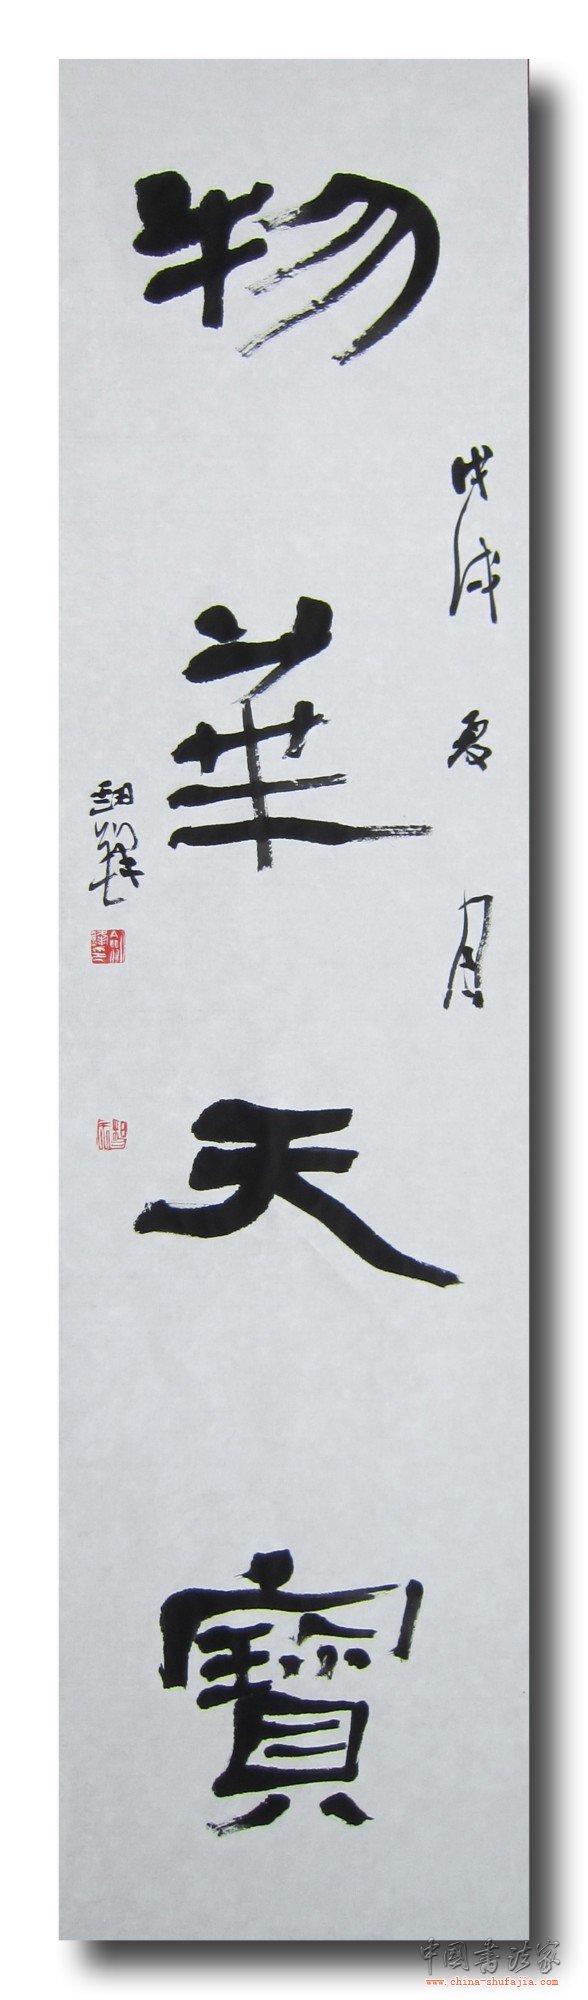 物華天寶
戊戌夏月
中国书法家
www.china-shufajia.com